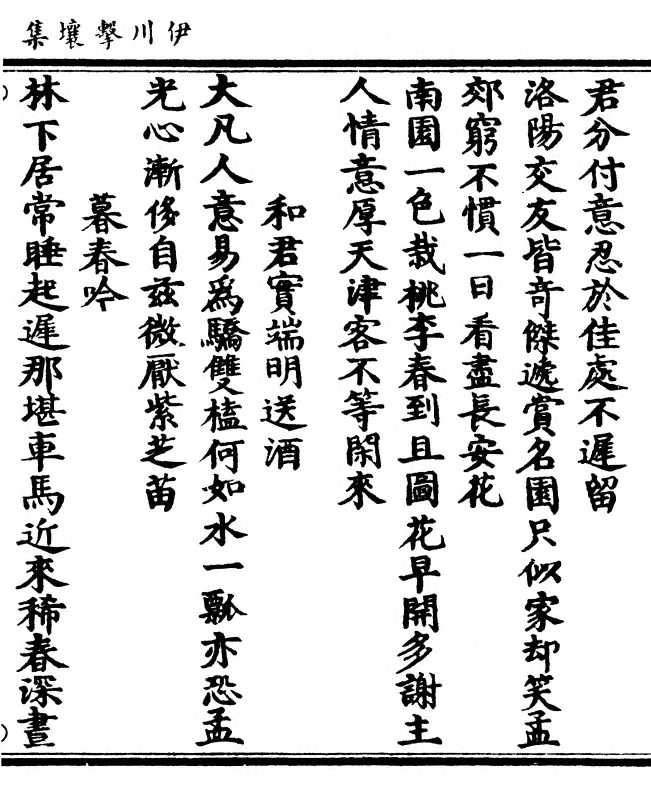 伊川擊壤集
君分付意忍於佳處不遲留
洛陽交友皆奇傑遞賞名園只似家却笑孟
郊窮不慣一日看盡長安花
南園一色栽桃李春到且圖花早開多謝主
人情意厚天津客不等閑來
和君實端明送酒
大凡人意易爲驕雙榼何如水一瓢亦恐孟
光心漸侈自茲微厭紫芝苗
暮春吟
林下居常睡起遲那堪車馬近來稀春深晝